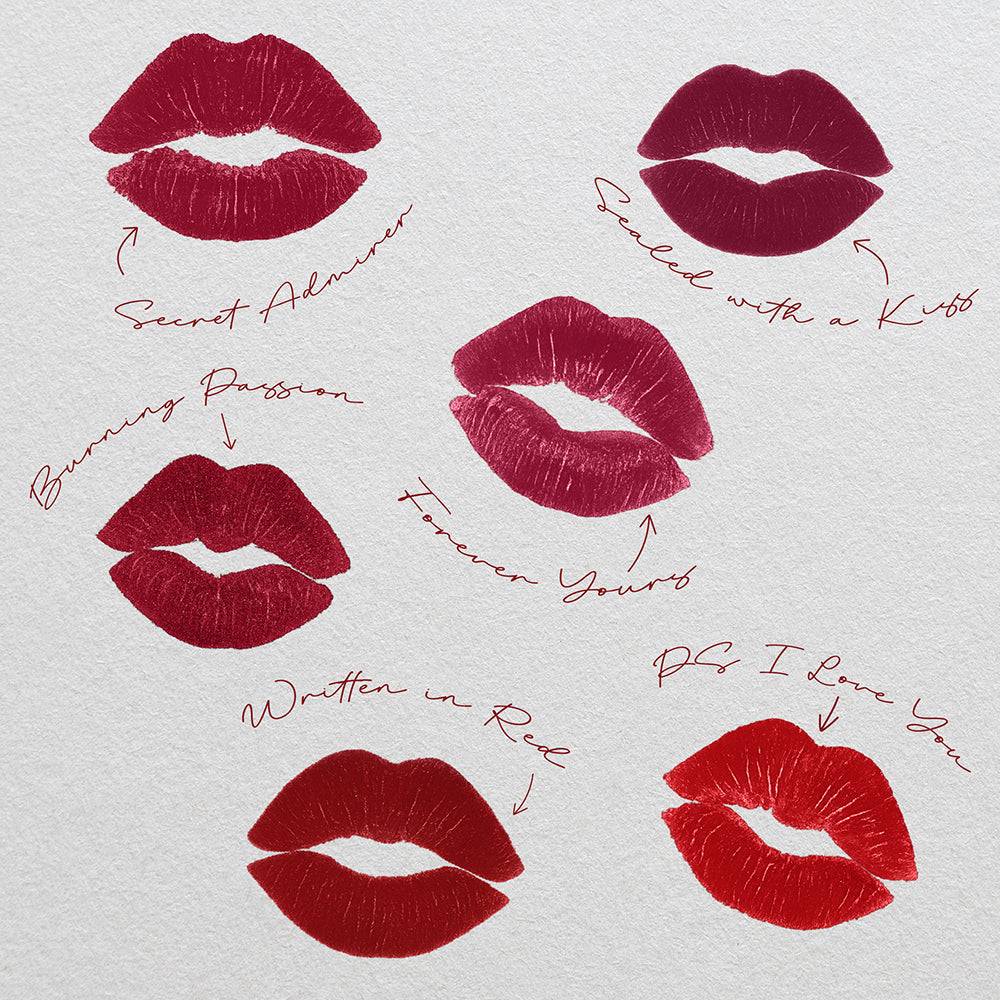 Secret Admirer
Sealed with a Kiss
Burning Passion
Forever Yours
Written in Red
PS I Love You